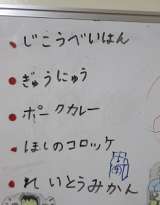 じこうべいはん
ぎゅうにゅう
ポークカレー
ほしのコロッケ
れいとうみかん